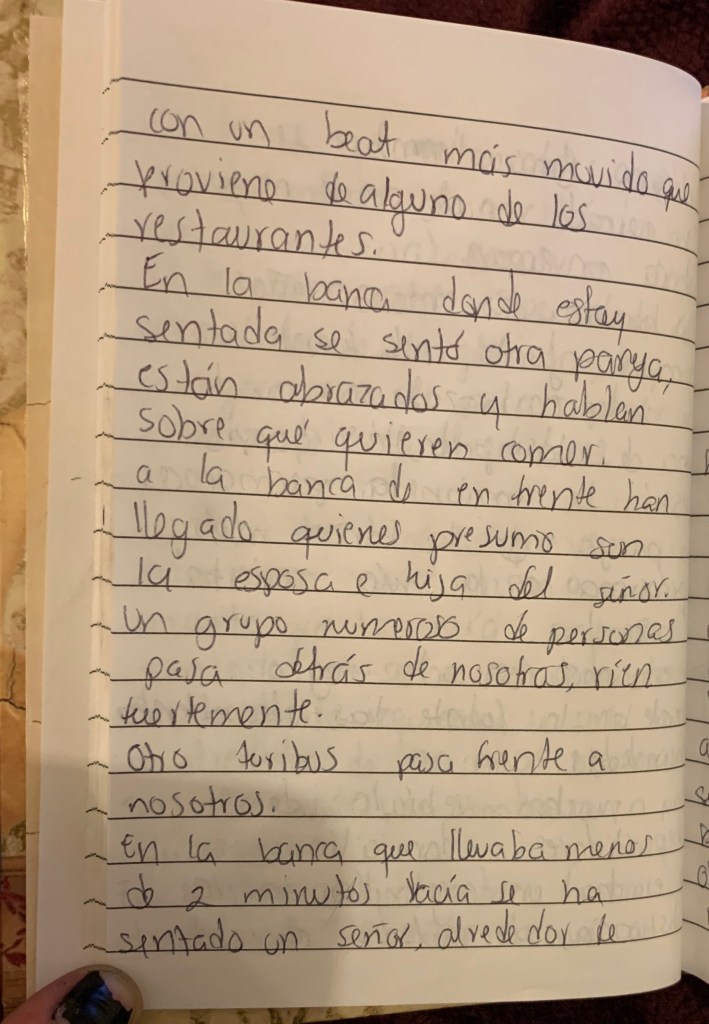 con un beat más movido que
proviene de alguno de los
restaurantes.
En la banca donde estoy
sentada se sentó otra pareja,
están abrazados y hablan
sobre qué quieren comer.
a la banca de en frente han
llegado quienes presumo son
la esposa e hija del señor.
un grupo numeroso de personas
pasa detrás de nosotros, rien
fuertemente.
Otro turibus pasa frente a
nosotros.
En la banca que llevaba menos
de 2 minutos vacía se ha
sentado un señor, alrededor de